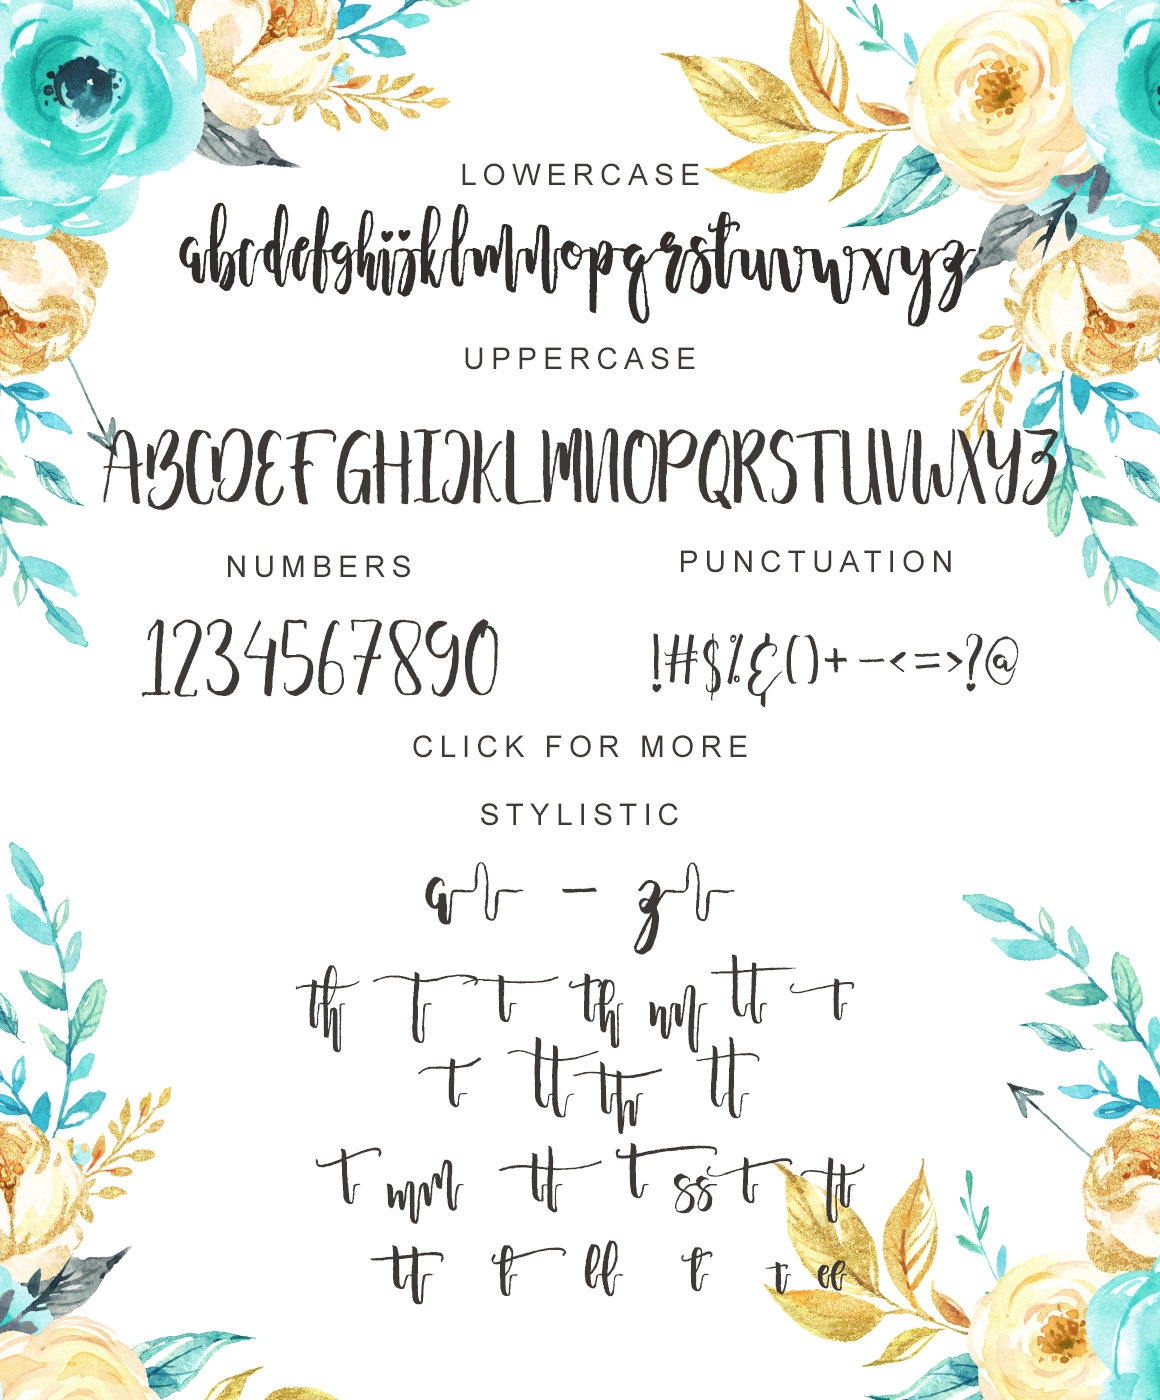 LOWERCASE
abcdefghijklmnopqrstuvwxyz
UPPERCASE
ABCDEFGHIJKLMNOPQRSTUVWXYZ
NUMBERS
PUNCTUATION
1234567890
!#$%&()+-<=>?@
CLICK FOR MORE
STYLISTIC
a - z
th t t th nn tt t
t tt th tt
t mm tt t ss t ft
tt t ll t t ee